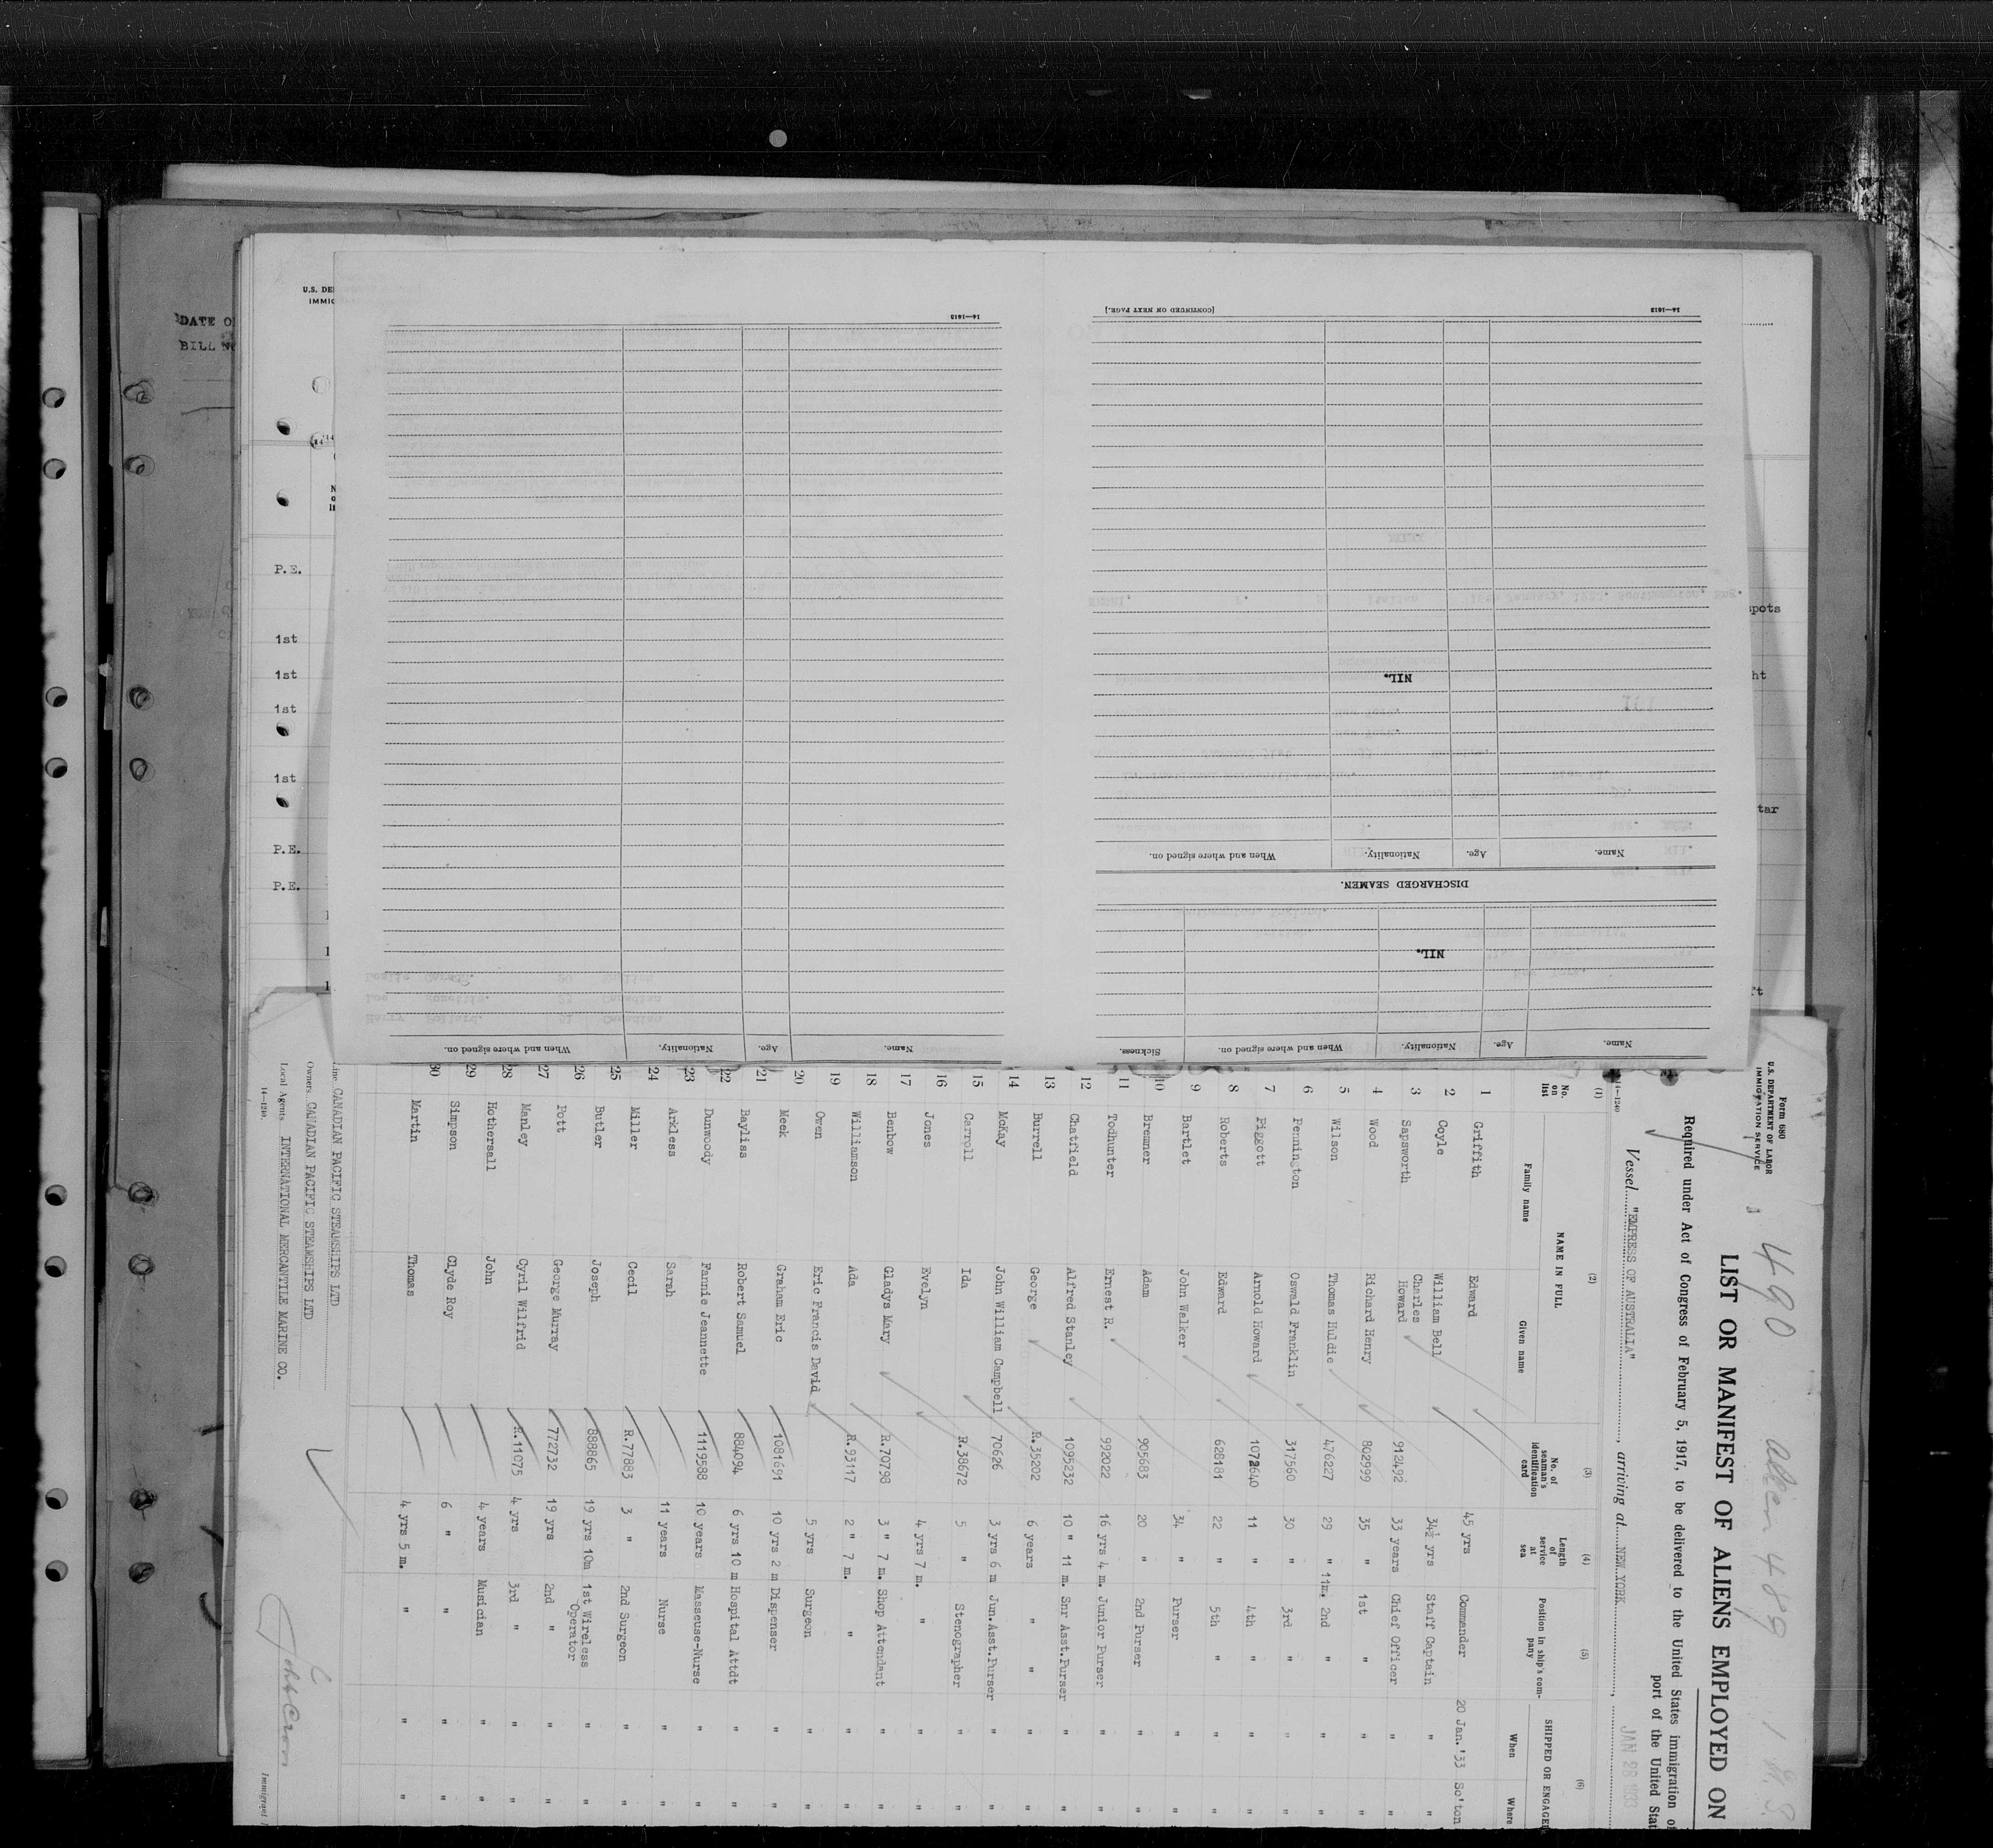 DATE O
BILL N
U.S. DE
IMMIG
P.E.
1st
1st
1st
1st
P.E.
P.E.
pots
ht
tar
14—1613
[CONTINUED ON NEXT PAGE.]
14—1613
NIL.
Name. Age. Nationality. When and where signed on.
DISCHARGED SEAMEN.
NIL.
Name. Age. Nationality. When and where signed on. Sickness.
Name. Age. Nationality. When and where signed on.
Form 680
U.S. DEPARTMENT OF LABOR
IMMIGRATION SERVICE
490 alien 489 1 U.S.
LIST OR MANIFEST OF ALIENS EMPLOYED ON
Required under Act of Congress of February 5, 1917, to be delivered to the United States immigration of
port of the United Stat
Vessel "EMPRESS OF AUSTRALIA", arriving at NEW YORK, JAN 28 1933
14—1240
(1) (2) (3) (4) (5) (6)
No. on list NAME IN FULL No. of seaman's identification card Length of service at sea Position in ship's company SHIPPED OR ENGAGE
Family name Given name When Where
1 Griffith Edward 45 yrs Commander 20 Jan. '33 So'ton
2 Coyle William Bell 34½ yrs Staff Captain " "
3 Sapsworth Charles Howard 912492 33 years Chief Officer " "
4 Wood Richard Henry 802999 35 " 1st " " "
5 Wilson Thomas Huldie 476227 29 " 11m. 2nd " " "
6 Pennington Oswald Franklin 317560 30 " 3rd " " "
7 Piggott Arnold Howard 1072640 11 " 4th " " "
8 Roberts Edward 628181 22 " 5th " " "
9 Bartlet John Walker 34 " Purser " "
10 Bremner Adam 905683 20 " 2nd Purser " "
11 Todhunter Ernest R. 992022 16 yrs 4 m. Junior Purser " "
12 Chatfield Alfred Stanley 1095232 10 " 11 m. Snr Asst.Purser " "
13 Burrell George R.35202 6 years " " " "
14 McKay John William Campbell 70626 3 yrs 6 m Jun.Asst.Purser " "
15 Carroll Ida R.38672 5 " Stenographer " "
16 Jones Evelyn 4 yrs 7 m. " " "
17 Benbow Gladys Mary R.70798 3 " 7 m. Shop Attendant " "
18 Williamson Ada R.93117 2 " 7 m. " " "
19 Owen Eric Francis David 5 yrs Surgeon " "
20 Meek Graham Eric 1081691 10 yrs 2 m Dispenser " "
21 Bayliss Robert Samuel 884094 6 yrs 10 m Hospital Attdt " "
22 Dunwoody Fannie Jeannette 1119588 10 years Masseuse-Nurse " "
23 Arkless Sarah 11 years Nurse " "
24 Miller Cecil R.77883 3 " 2nd Surgeon " "
25 Butler Joseph 888865 19 yrs 10m 1st Wireless Operator " "
26 Pott George Murray 772732 19 yrs 2nd " " "
27 Manley Cyril Wilfrid R.11075 4 yrs 3rd " " "
28 Hothersall John 4 years Musician " "
29 Simpson Clyde Roy 6 " " " "
30 Martin Thomas 4 yrs 5 m. " " "
Line CANADIAN PACIFIC STEAMSHIPS LTD
Owners CANADIAN PACIFIC STEAMSHIPS LTD
Local Agents INTERNATIONAL MERCANTILE MARINE CO.
14—1240.
Immigrant